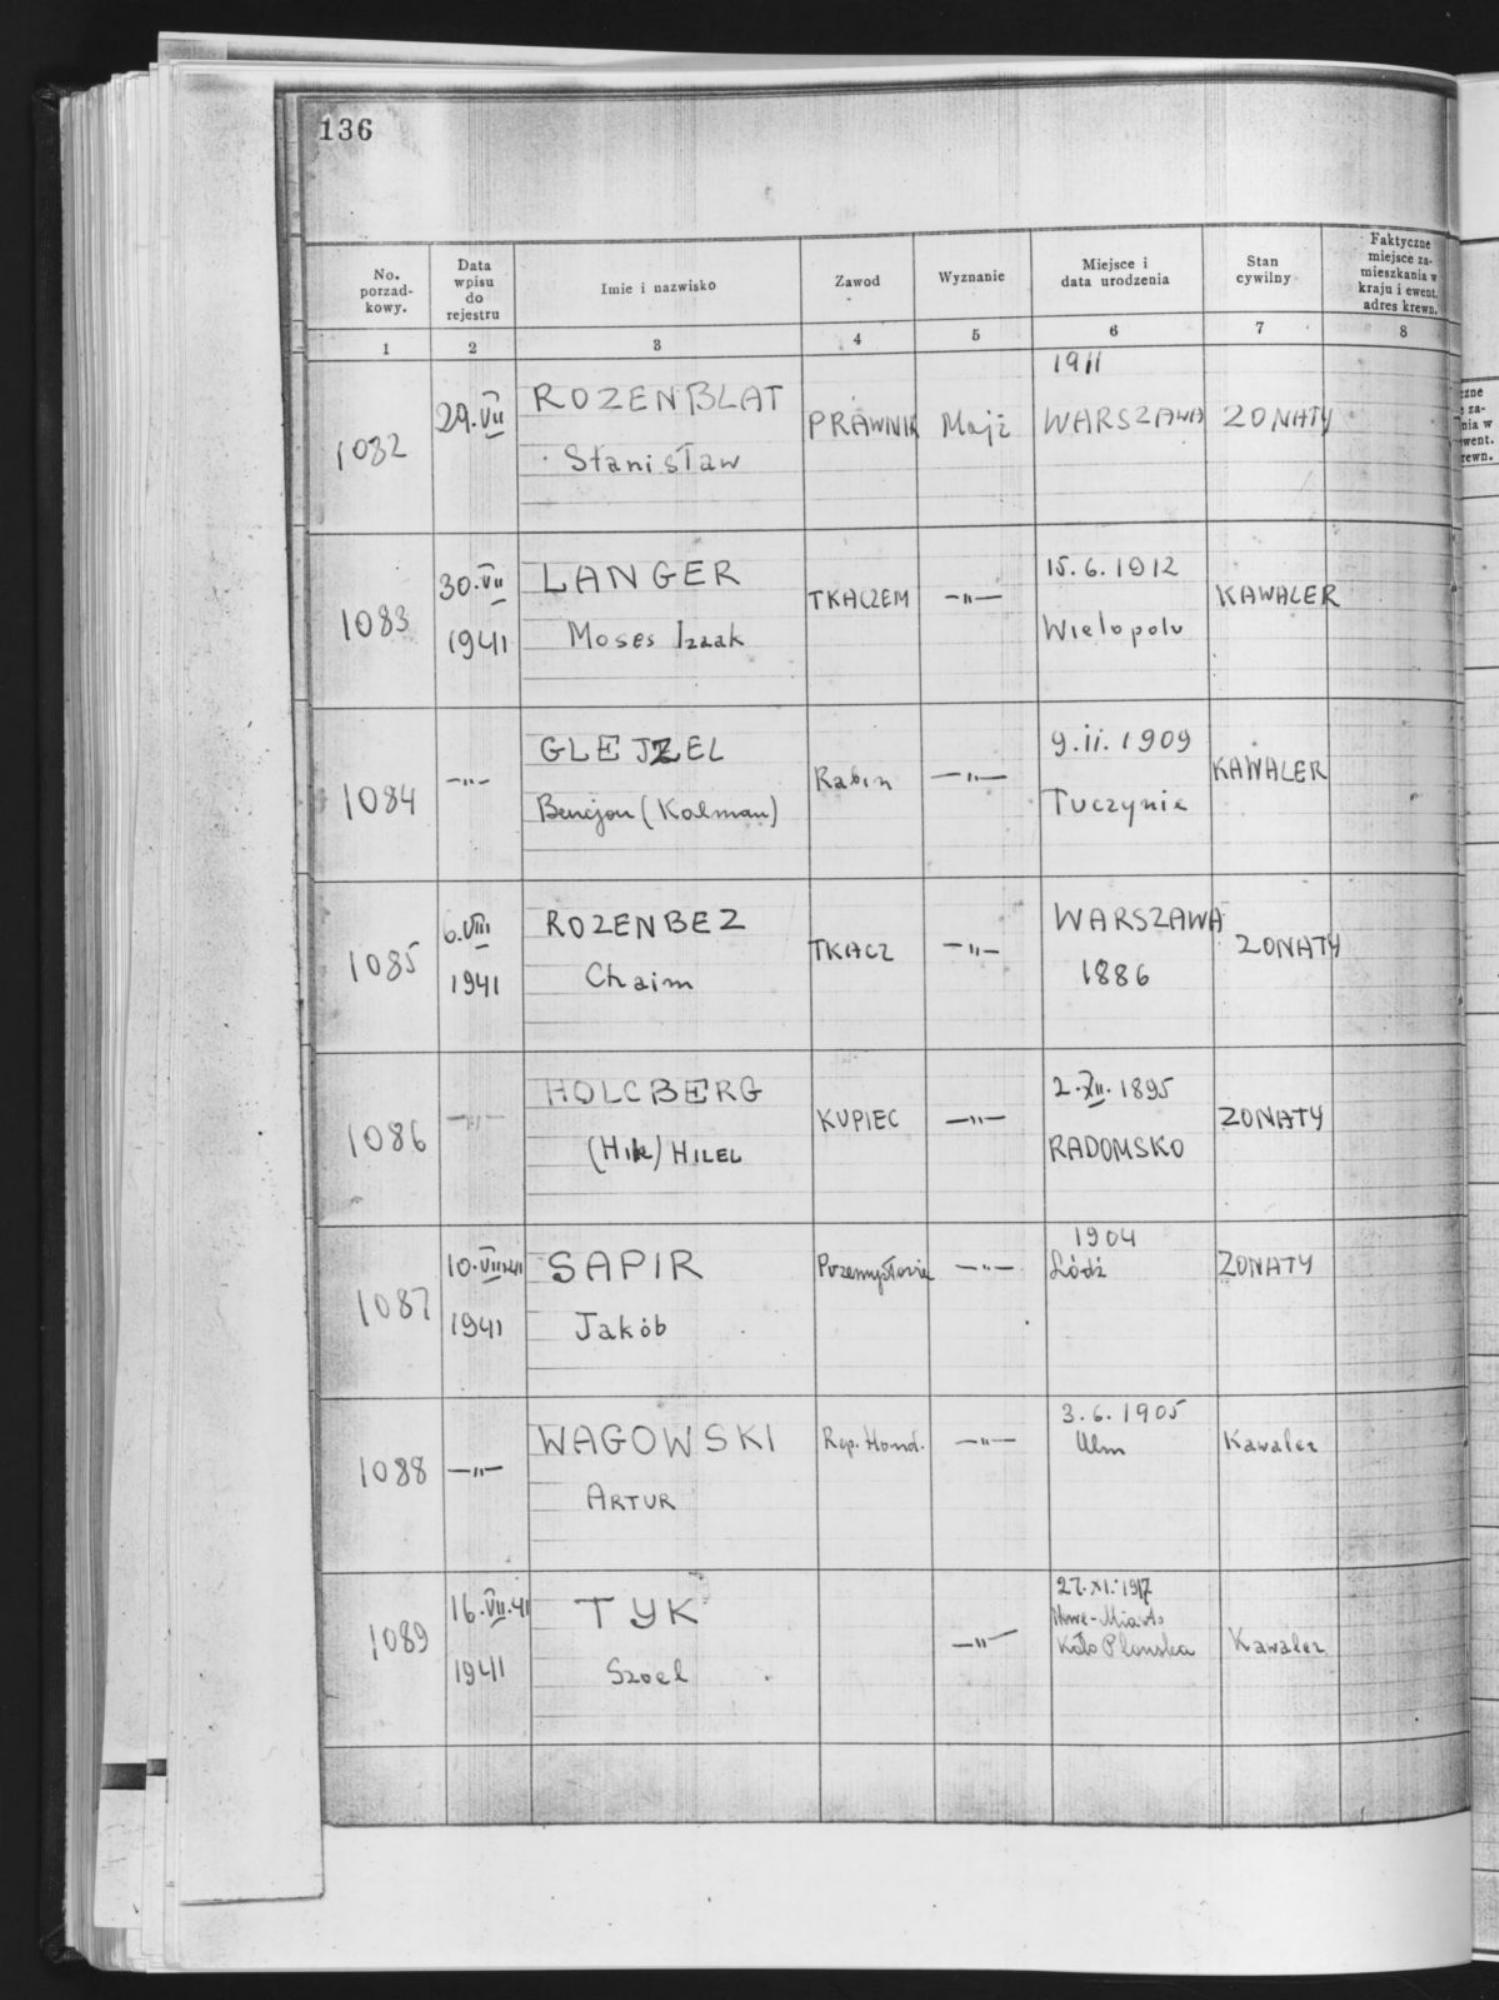 136
No. porzad- kowy.
Data wpisu do rejestru
Imie i nazwisko
Zawod
Wyznanie
Miejsce i data urodzenia
Stan cywilny
Faktyczne miejsce za- mieszkania w kraju i ewent. adres krewn.
1 2 3 4 5 6 7 8
1082 29.VII ROZENBLAT PRAWNIK Mojż 1911 WARSZAWA ZONATY
Stanisław
1083 30.VII LANGER TKACZEM —"— 15.6.1912 KAWALER
1941 Moses Izaak Wielopolu
1084 —"— GLEJZEL Rabin —"— 9.ii.1909 KAWALER
Bencjon (Kalman) Tuczynie
1085 6.VIII ROZENBEZ TKACZ —"— WARSZAWA ZONATY
1941 Chaim 1886
1086 —"— HOLCBERG KUPIEC —"— 2.XII.1895 ZONATY
HILEL RADOMSKO
1087 10.VII.41 SAPIR —"— 1904 Łódź ZONATY
1941 Jakób
1088 —"— WAGOWSKI Rep. Hand. —"— 3.6.1905 Ulm Kawaler
ARTUR
1089 16.VII.41 TYK —"— 27.XI.1917 Kawaler
1941 Szoel Nowe-Miasto
Koło Płonska
zne
za-
nia w
went.
rewn.